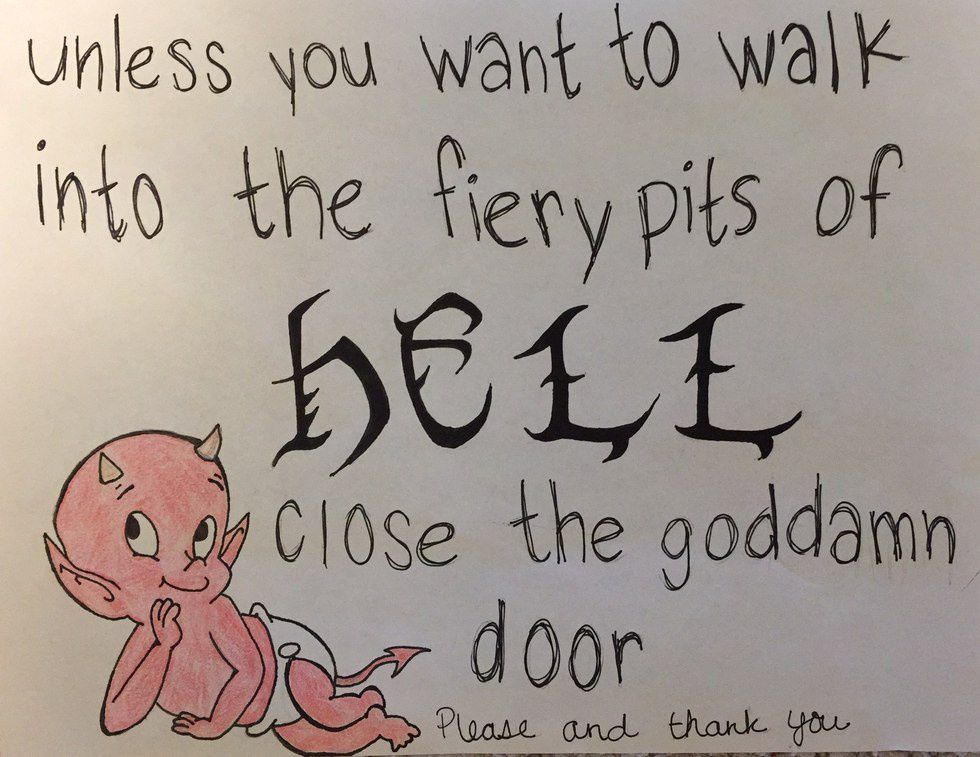 unless you want to walk
into the fiery pits of
HELL
close the goddamn
door
Please and thank you